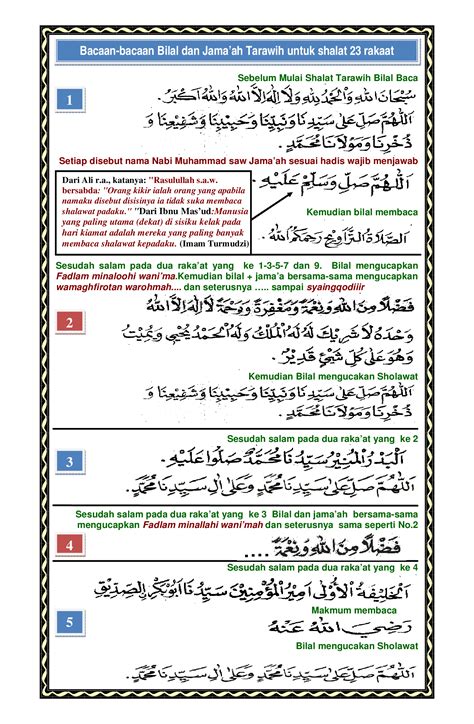 Bacaan-bacaan Bilal dan Jama'ah Tarawih untuk shalat 23 rakaat
Sebelum Mulai Shalat Tarawih Bilal Baca
1
سُبْحَانَ اللهِ وَالْحَمْدُ لِلهِ وَلَا إِلٰهَ اِلَّا اللهُ وَاللهُ اَكْبَرُ.
اَللّٰهُمَّ صَلِّ عَلٰى سَيِّدِنَا وَنَبِيِّنَا وَحَبِيْبِنَا وَشَفِيْعِنَا وَ
ذُخْرِنَا وَمَوْلَانَا مُحَمَّدٍ.
Setiap disebut nama Nabi Muhammad saw Jama'ah sesuai hadis wajib menjawab
Dari Ali r.a., katanya: "Rasulullah s.a.w.
bersabda: "Orang kikir ialah orang yang apabila
namaku disebut disisinya ia tidak suka membaca
shalawat padaku." "Dari Ibnu Mas'ud:Manusia
yang paling utama (dekat) di sisiku kelak pada
hari kiamat adalah mereka yang paling banyak
membaca shalawat kepadaku. (Imam Turmudzi)
اَللّٰهُمَّ صَلِّ وَسَلِّمْ عَلَيْهِ.
Kemudian bilal membaca
اَلصَّلَاةَ التَّرَاوِيْحَ رَحِمَكُمُ اللهُ.
Sesudah salam pada dua raka'at yang ke 1-3-5-7 dan 9. Bilal mengucapkan
Fadlam minaloohi wani'ma.Kemudian bilal + jama'a bersama-sama mengucapkan
wamaghfirotan warohmah.... dan seterusnya ….. sampai syaingqodiiir
2
فَضْلًا مِنَ اللهِ وَنِعْمَةً وَمَغْفِرَةً وَرَحْمَةً لَا اِلٰهَ اِلَّا اللهُ
وَحْدَهُ لَا شَرِيْكَ لَهُ لَهُ الْمُلْكُ وَلَهُ الْحَمْدُ يُحْيِيْ وَيُمِيْتُ
وَهُوَ عَلٰى كُلِّ شَيْئٍ قَدِيْرٌ.
Kemudian Bilal mengucakan Sholawat
اَللّٰهُمَّ صَلِّ عَلٰى سَيِّدِنَا وَنَبِيِّنَا وَحَبِيْبِنَا وَشَفِيْعِنَا وَ
ذُخْرِنَا وَمَوْلَانَا مُحَمَّدٍ.
Sesudah salam pada dua raka'at yang ke 2
3
اَلْبَدْرُ الْمُنِيْرُ سَيِّدُنَا مُحَمَّدٌ صَلُّوْا عَلَيْهِ.
اَللّٰهُمَّ صَلِّ عَلٰى سَيِّدِنَا مُحَمَّدٍ وَعَلٰى اٰلِ سَيِّدِنَا مُحَمَّدٍ.
Sesudah salam pada dua raka'at yang ke 3 Bilal dan jama'ah bersama-sama
mengucapkan Fadlam minallahi wani'mah dan seterusnya sama seperti No.2
4
فَضْلًا مِنَ اللهِ وَنِعْمَةً ....
Sesudah salam pada dua raka'at yang ke 4
اَلْخَلِيْفَةُ الْأُوْلٰى اَمِيْرُ الْمُؤْمِنِيْنَ سَيِّدُنَا اَبُوْبَكْرٍ الصِّدِّيْقُ
Makmum membaca
5
رَضِيَ اللهُ عَنْهُ
Bilal mengucakan Sholawat
اَللّٰهُمَّ صَلِّ عَلٰى سَيِّدِنَا مُحَمَّدٍ وَعَلٰى اٰلِ سَيِّدِنَا مُحَمَّدٍ.